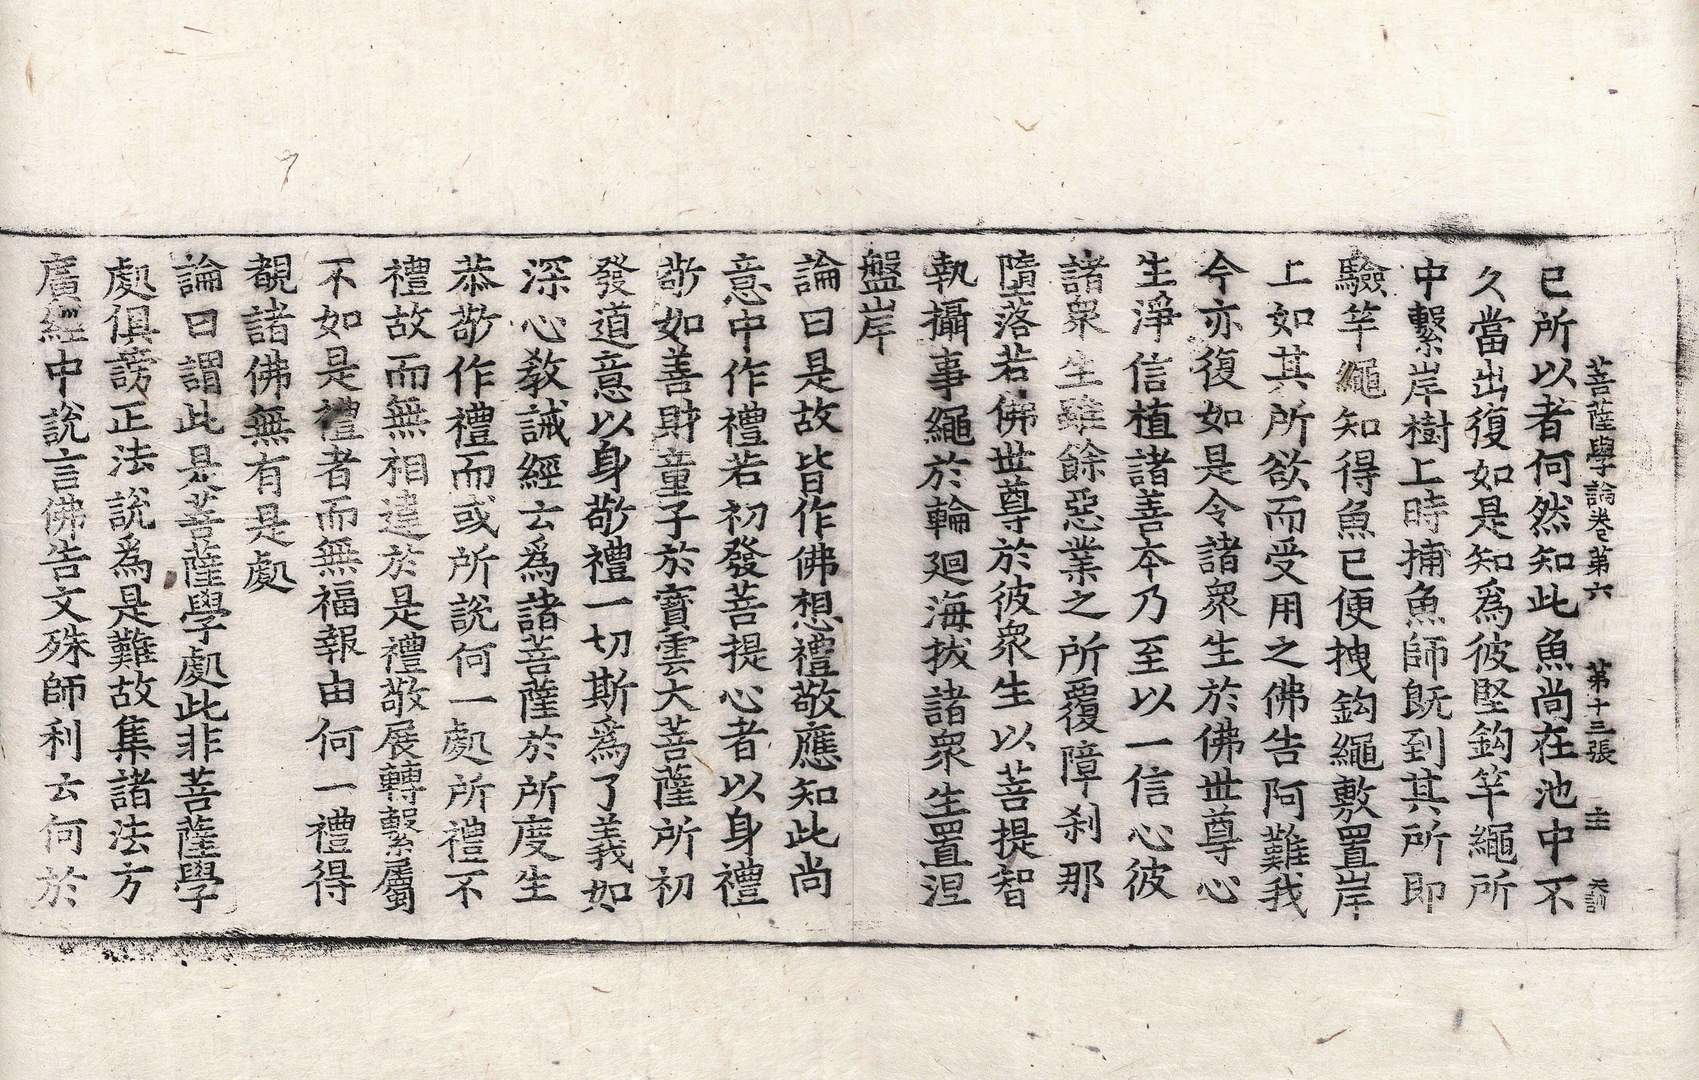 菩薩學論卷第六 第十三張 主
已所以者何然知此魚尚在池中不
久當出復如是知爲彼堅鈎竿繩所
中繫岸樹上時捕魚師既到其所即
驗竿繩知得魚已便拽鈎繩敷置岸
上如其所欲而受用之佛告阿難我
今亦復如是令諸衆生於佛世尊心
生淨信植諸善本乃至以一信心彼
諸衆生雖餘惡業之所覆障刹那
墮落若佛世尊於彼衆生以菩提智
執攝事繩於輪迴海拔諸衆生置涅
盤岸
論曰是故皆作佛想禮敬應知此尚
意中作禮若初發菩提心者以身禮
敬如善財童子於寶雲大菩薩所初
發道意以身敬禮一切斯爲了義如
深心教誡經云爲諸菩薩於所度生
恭敬作禮而或所說何一處所禮不
禮故而無相違於是禮敬展轉繫屬
不如是禮者而無福報由何一禮得
覩諸佛無有是處
論曰謂此是菩薩學處此非菩薩學
處俱謗正法說爲是難故集諸法方
廣經中說言佛告文殊師利云何於